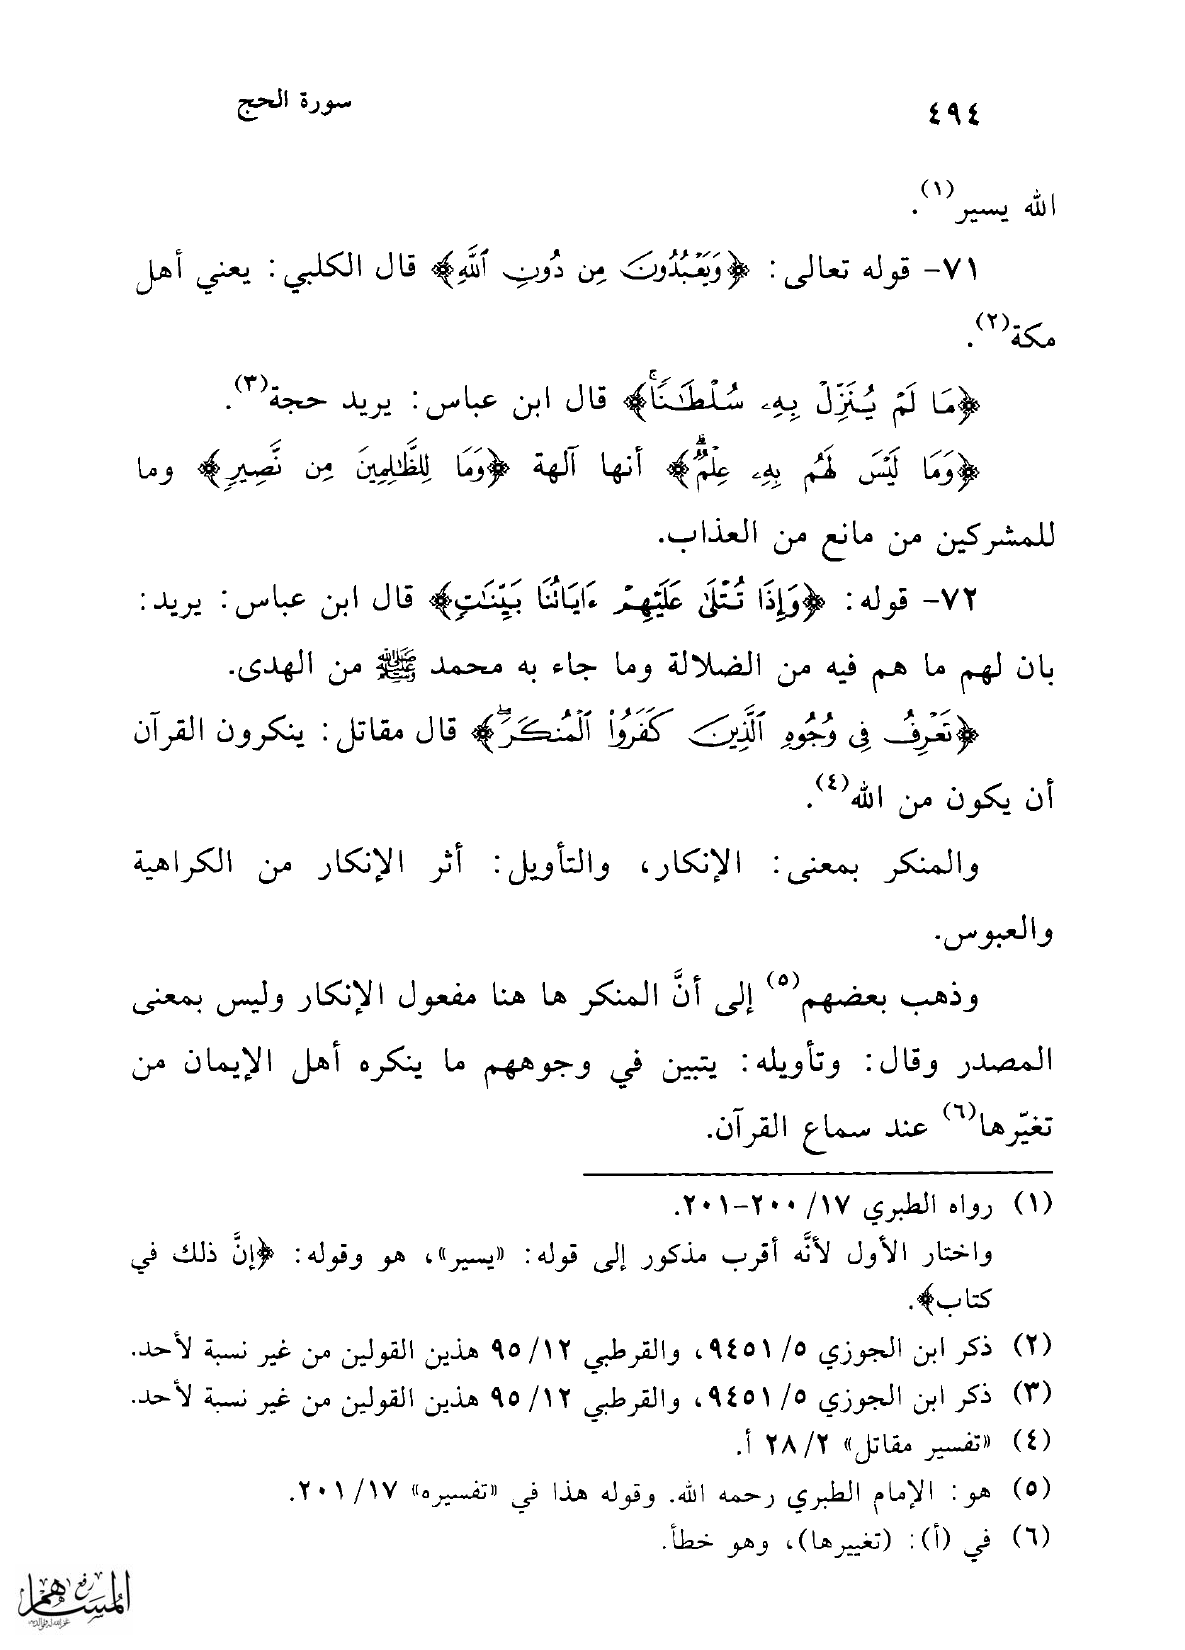 ٤٩٤
سورة الحج
الله يسير(١).
٧١- قوله تعالى: ﴿وَيَعْبُدُونَ مِن دُونِ ٱللَّهِ﴾ قال الكلبي: يعني أهل
مكة(٢).
﴿مَا لَمْ يُنَزِّلْ بِهِۦ سُلْطَٰنًا﴾ قال ابن عباس: يريد حجة(٣).
﴿وَمَا لَيْسَ لَهُم بِهِۦ عِلْمٌ﴾ أنها آلهة ﴿وَمَا لِلظَّٰلِمِينَ مِن نَّصِيرٍ﴾ وما
للمشركين من مانع من العذاب.
٧٢- قوله: ﴿وَإِذَا تُتْلَىٰ عَلَيْهِمْ ءَايَاتُنَا بَيِّنَٰتٍ﴾ قال ابن عباس: يريد:
بان لهم ما هم فيه من الضلالة وما جاء به محمد ﷺ من الهدى.
﴿تَعْرِفُ فِى وُجُوهِ ٱلَّذِينَ كَفَرُوا۟ ٱلْمُنكَرَ ۖ﴾ قال مقاتل: ينكرون القرآن
أن يكون من الله(٤).
والمنكر بمعنى: الإنكار، والتأويل: أثر الإنكار من الكراهية
والعبوس.
وذهب بعضهم(٥) إلى أنَّ المنكر ها هنا مفعول الإنكار وليس بمعنى
المصدر وقال: وتأويله: يتبين في وجوههم ما ينكره أهل الإيمان من
تغيّرها(٦) عند سماع القرآن.
(١) رواه الطبري ١٧/ ٢٠٠-٢٠١.
واختار الأول لأنَّه أقرب مذكور إلى قوله: «يسير»، هو وقوله: ﴿إنَّ ذلك في
كتاب﴾.
(٢) ذكر ابن الجوزي ٥/ ٩٤٥١، والقرطبي ١٢/ ٩٥ هذين القولين من غير نسبة لأحد.
(٣) ذكر ابن الجوزي ٥/ ٩٤٥١، والقرطبي ١٢/ ٩٥ هذين القولين من غير نسبة لأحد.
(٤) «تفسير مقاتل» ٢/ ٢٨ أ.
(٥) هو: الإمام الطبري رحمه الله. وقوله هذا في «تفسيره» ١٧/ ٢٠١.
(٦) في (أ): (تغييرها)، وهو خطأ.